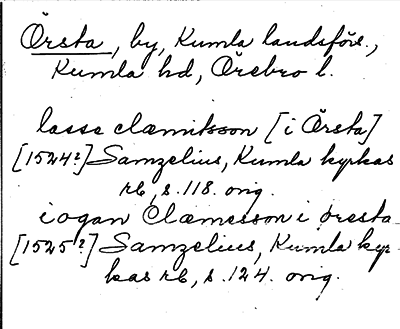 Örsta, by, Kumla landsförs.,
Kumla hd, Örebro l.
lasse clæmitsson [i Örsta]
[1524?] Samzelius, Kumla kyrkas
rb, s. 118. orig.
iogan Clæmesson i øresta
[1525?] Samzelius, Kumla kyr-
kas rb, s. 124. orig.